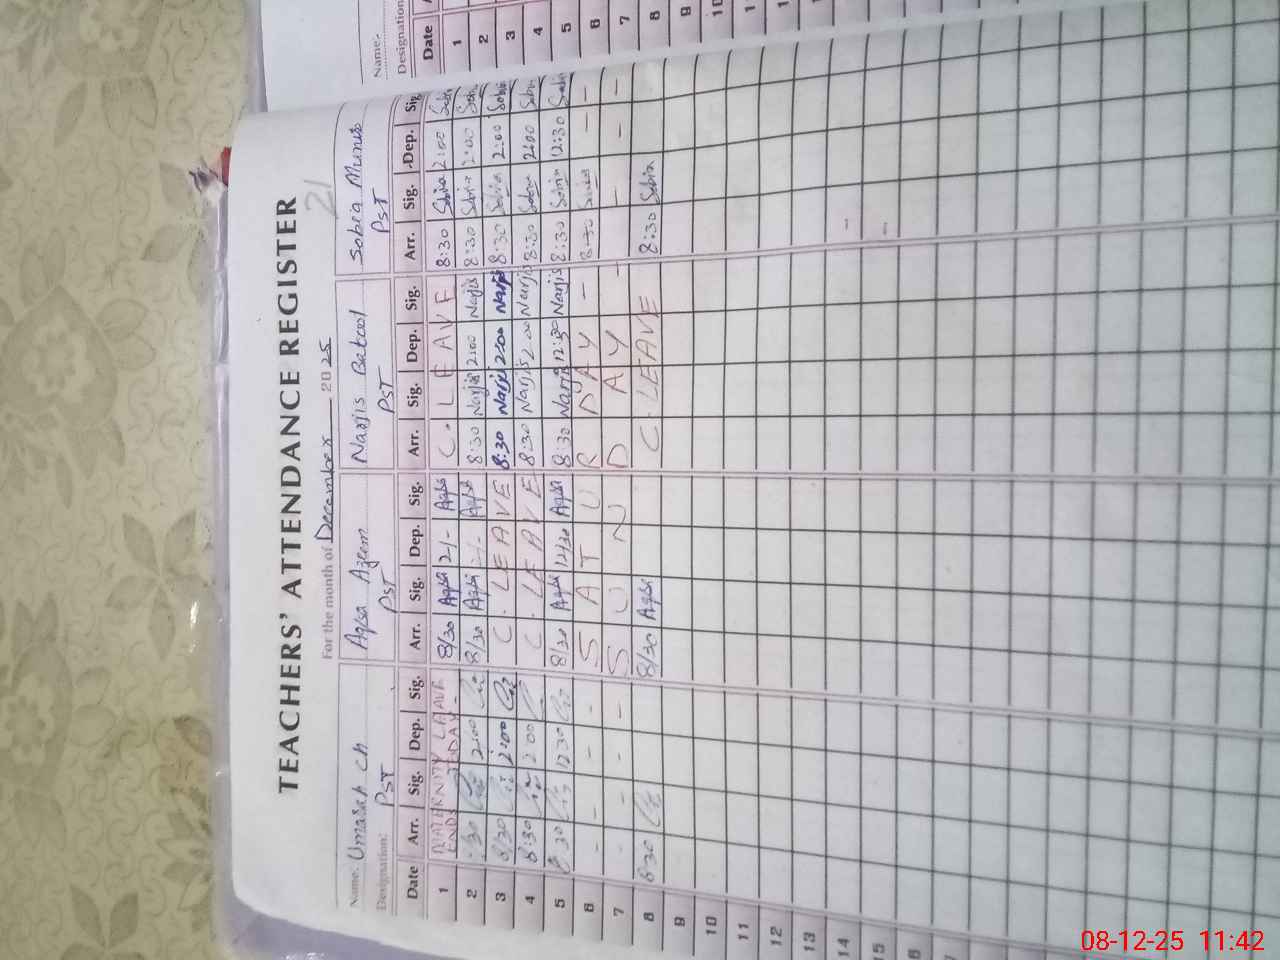 21
TEACHERS' ATTENDANCE REGISTER
For the month of December 2025
Name: Umarah Ch Aqsa Azeem Narjis Batool Sobia Munir
Designation: PST PST PST PST
Date Arr. Sig. Dep. Sig. Arr. Sig. Dep. Sig. Arr. Sig. Dep. Sig. Arr. Sig. Dep. Sig
1 MATERNITY LEAVE ENDS TODAY 8/30 Aqsa 2/- Aqsa C. LEAVE 8:30 Sobia 2:00 Sobi
2 :30 2:00 8/30 Aqsa 2/- Aqsa 8:30 Narjis 2:00 Narjis 8:30 Sobia 2:00 Sobi
3 8/30 2:00 C. LEAVE 8:30 Narjis 2:00 Narjis 8:30 Sobia 2:00 Sobia
4 8:30 2:00 C. LEAVE 8:30 Narjis 2:00 Narjis 8:30 Sobia 2:00 Sobi
5 8:30 12:30 8/30 Aqsa 12/30 Aqsa 8:30 Narjis 12:30 Narjis 8:30 Sobia 12:30 Sobia
6 - - - - S A T U R D A Y - 8:30 Sobia - -
7 - - - - S U N D A Y - - - -
8 8:30 8/30 Aqsa C. LEAVE 8:30 Sobia
9
10
11
12
13
14
15
Name:
Designation
Date
1
2
3
4
5
6
7
8
9
10
08-12-25 11:42